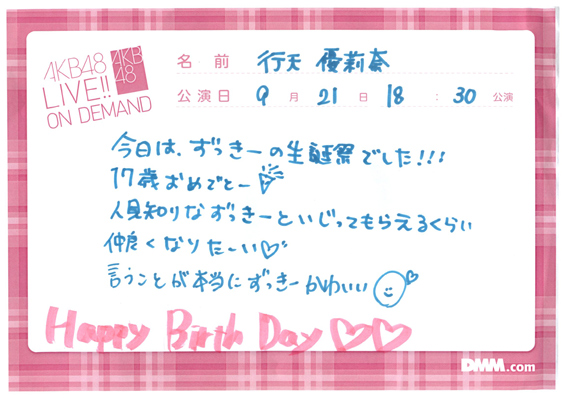 AKB48
LIVE!!
ON DEMAND
AKB
48
名前 行天 優莉奈
公演日 9月 21日 18:30 公演
今日は、ずっきーの生誕祭でした!!!
17歳おめでとー
人見知りなずっきーといじってもらえるくらい
仲良くなりたーい♡
言うことが本当にずっきーかわいい
Happy Birth Day♡♡
DMM.com